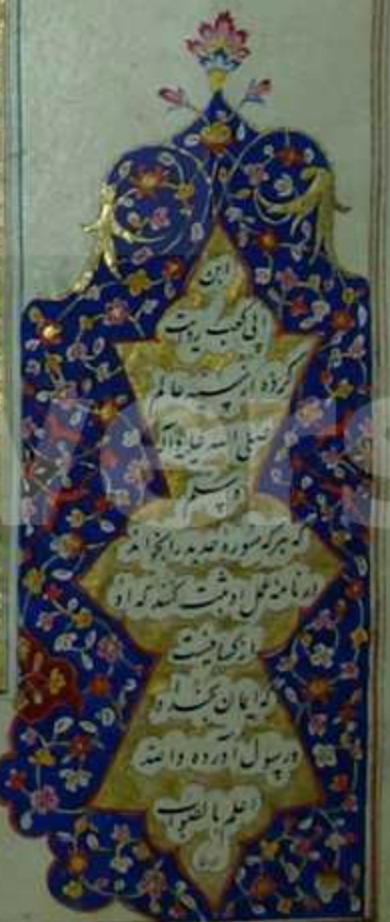 ابن
ابی کعب روایت
کرده از سید عالم
صلی الله علیه وآله
وسلم
که هرکه سوره حدید را بخواند
در نامه عمل او ثبت کنند که او
از کسانیست
که ایمان بخدا و
و رسول آورده والله
اعلم بالصواب